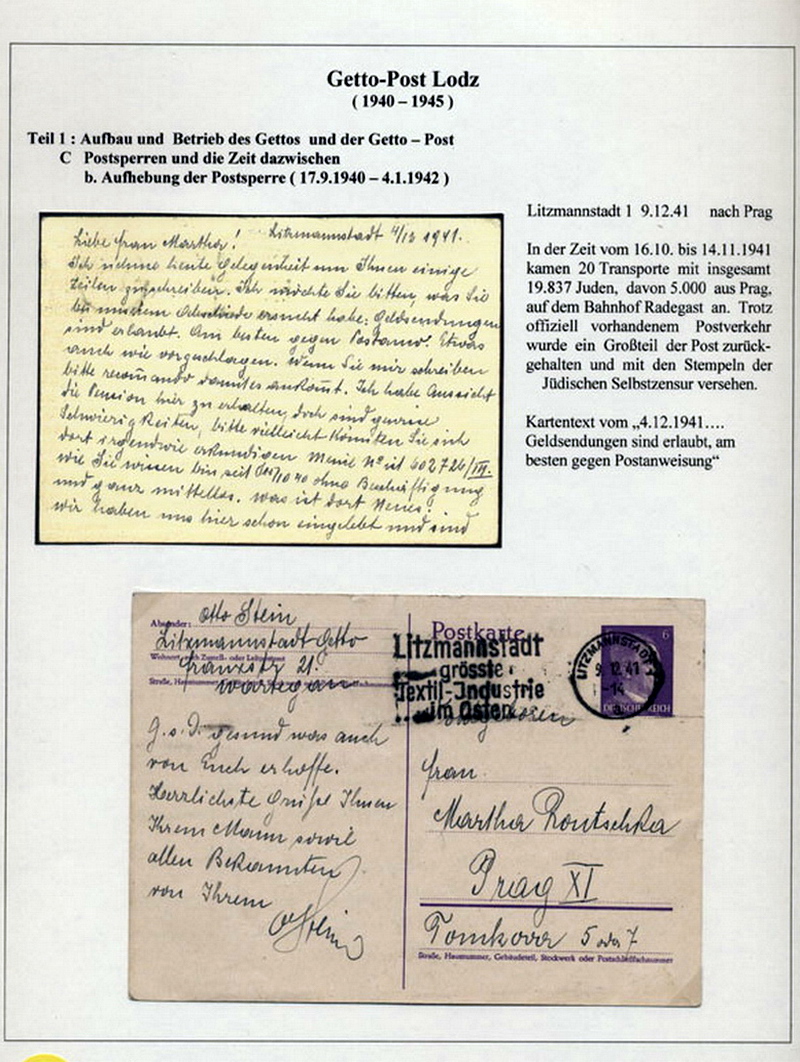 Getto-Post Lodz
( 1940 – 1945 )
Teil 1 : Aufbau und Betrieb des Gettos und der Getto – Post
C Postsperren und die Zeit dazwischen
b. Aufhebung der Postsperre ( 17.9.1940 – 4.1.1942 )
Litzmannstadt 1 9.12.41 nach Prag
In der Zeit vom 16.10. bis 14.11.1941
kamen 20 Transporte mit insgesamt
19.837 Juden, davon 5.000 aus Prag,
auf dem Bahnhof Radegast an. Trotz
offiziell vorhandenem Postverkehr
wurde ein Großteil der Post zurück-
gehalten und mit den Stempeln der
Jüdischen Selbstzensur versehen.
Kartentext vom „4.12.1941….
Geldsendungen sind erlaubt, am
besten gegen Postanweisung“
Liebe Frau Martha! Litzmannstadt 4/12 1941.
Ich nehme heute Gelegenheit um Ihnen einige
Zeilen zu schreiben. Ich möchte Sie bitten, was Sie
bei meinem ersucht habe. Geldsendungen
sind erlaubt. Am besten gegen Postanw. Etwas
auch wie vorgeschlagen. Wenn Sie mir schreiben
bitte damit es ankom̅t. Ich habe Aussicht
die Pension hier zu erhalten, doch sind gewisse
Schwierigkeiten, bitte vielleicht könnten Sie sich
dort irgendwie erkundigen Meine No ist 602726/III.
wie Sie wissen bin seit ohne Beschäftigung
und ganz mittellos. Was ist dort Neues.
Wir haben uns hier schon eingelebt und sind
Absender: Otto Stein
Litzmannstadt Getto
Wohnort, auch Zustell- oder Leitpostamt
Franzstr 21.
Straße, Hausnummer,
Wartegau
Postkarte
Litzmannstadt
grösste
Textil-Industrie
im Osten
LITZMANNSTADT
9.12.41
-14
6
DEUTSCHES REICH
G.s.D. gesund was auch
von Euch erhoffe.
Herzlichste Grüße Ihnen
Ihrem Mann sowie
allen Bekannten
von Ihrem
OStein
Frau
Martha Routschka
Prag XI
Tomkova 5 oder 7
Straße, Hausnummer, Gebäudeteil, Stockwerk oder Postschließfachnummer